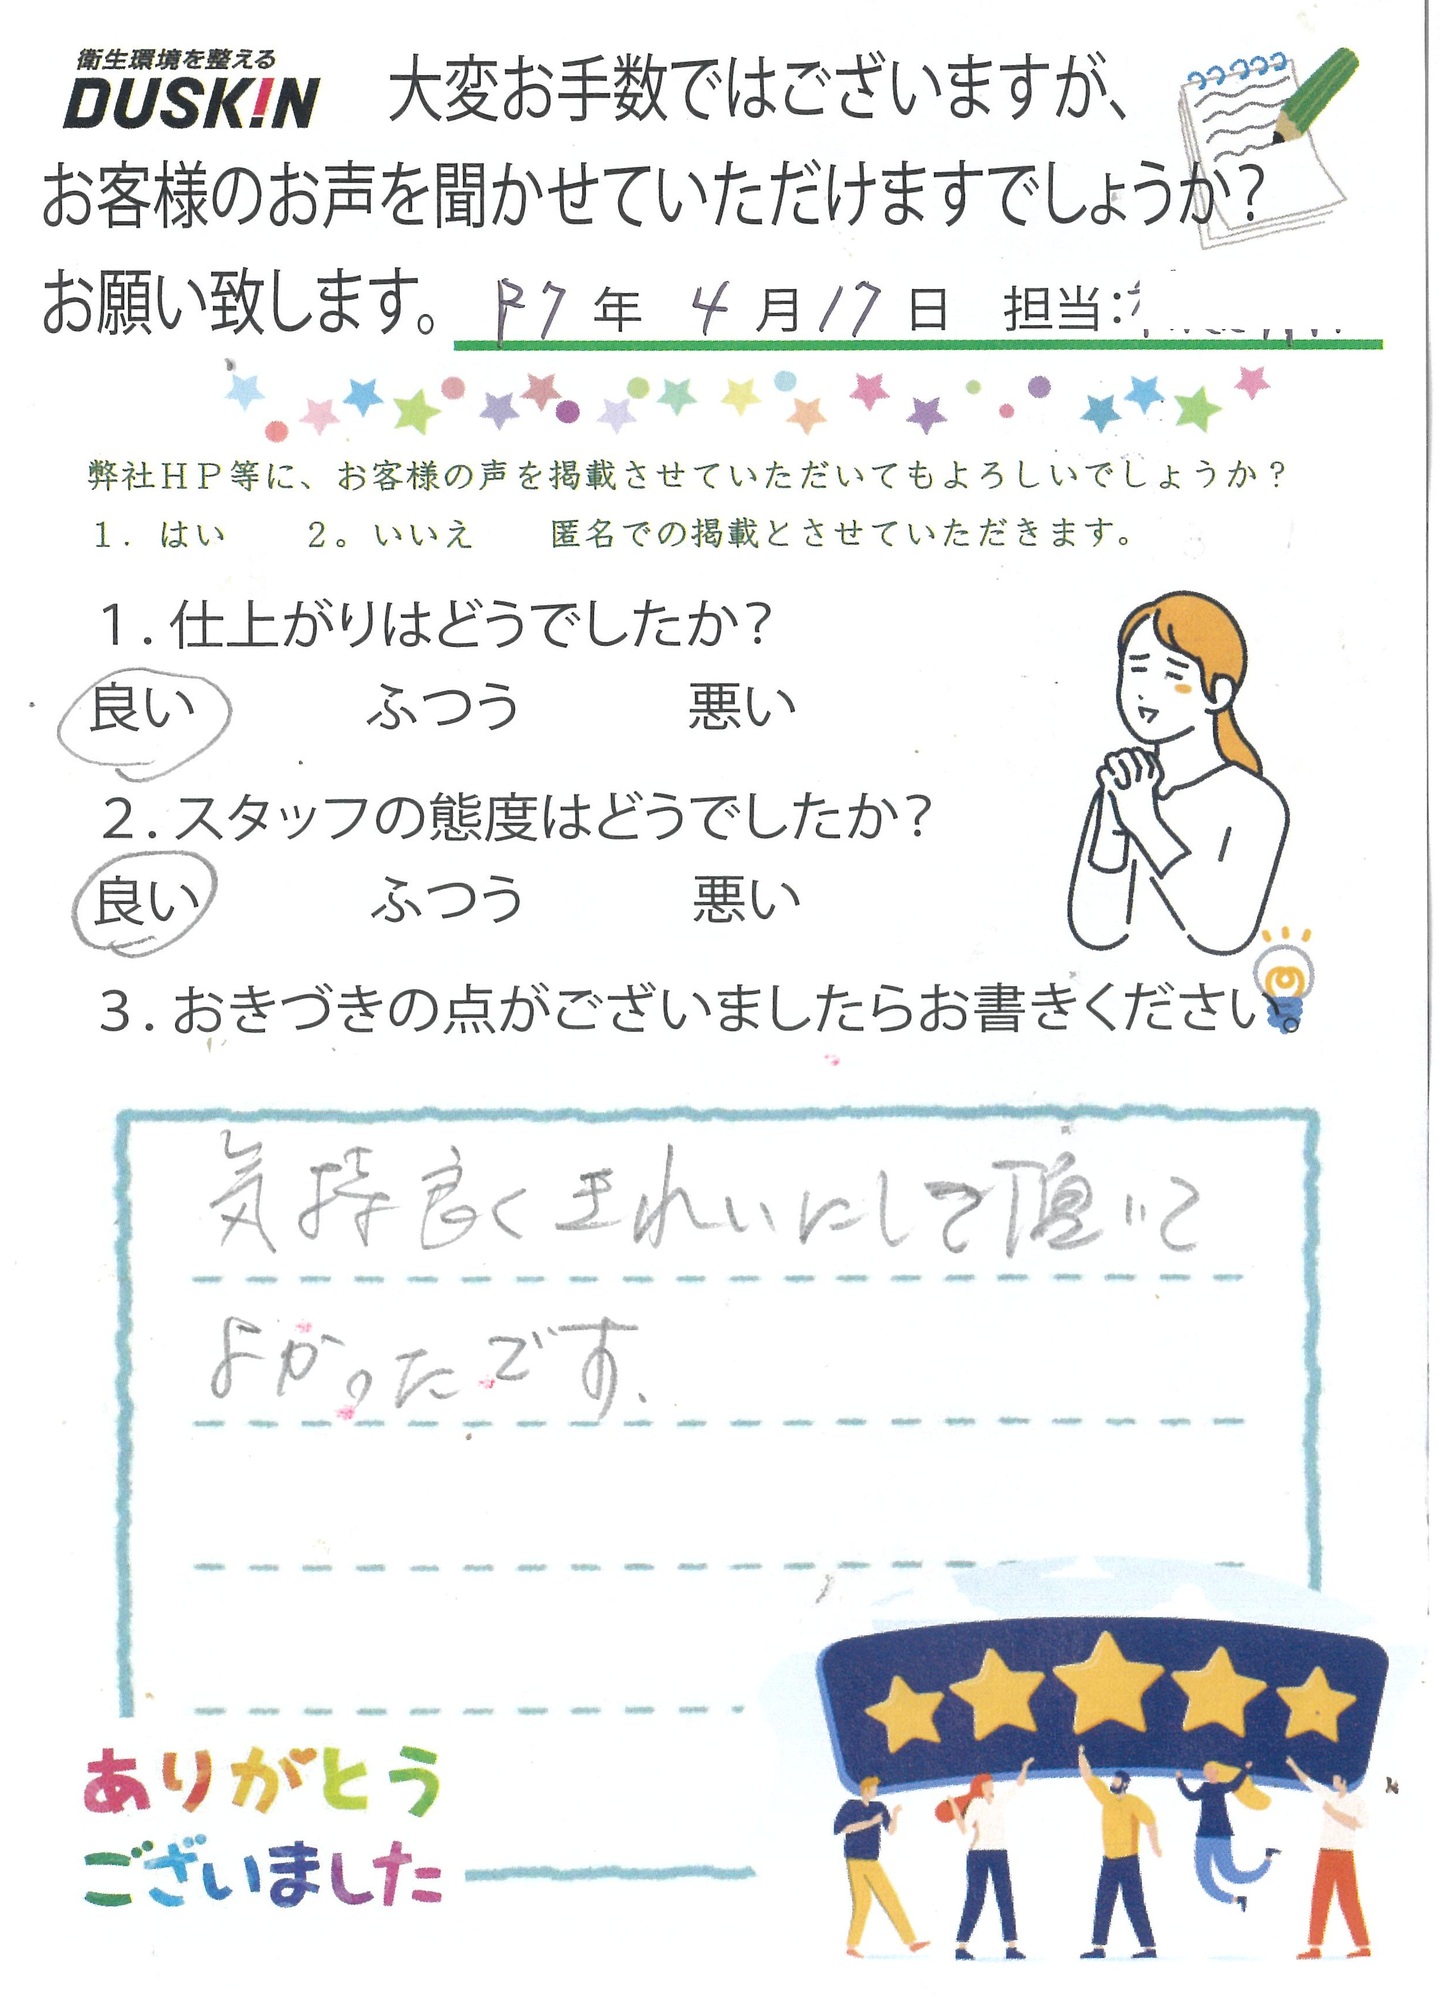 衛生環境を整える
DUSKIN
大変お手数ではございますが、
お客様のお声を聞かせていただけますでしょうか?
お願い致します。 R7年 4月17日 担当:
弊社HP等に、お客様の声を掲載させていただいてもよろしいでしょうか?
1. はい 2。いいえ 匿名での掲載とさせていただきます。
1.仕上がりはどうでしたか?
良い ふつう 悪い
2.スタッフの態度はどうでしたか?
良い ふつう 悪い
3.おきづきの点がございましたらお書きください。
気持良くきれいにして頂いて
よかったです.
ありがとう
ございました